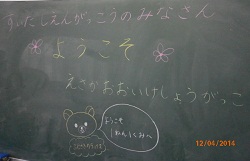 すいたしえんがっこうのみなさん
ようこそ
えさかおおいけしょうがっこ
ようこそ
12/04/2014